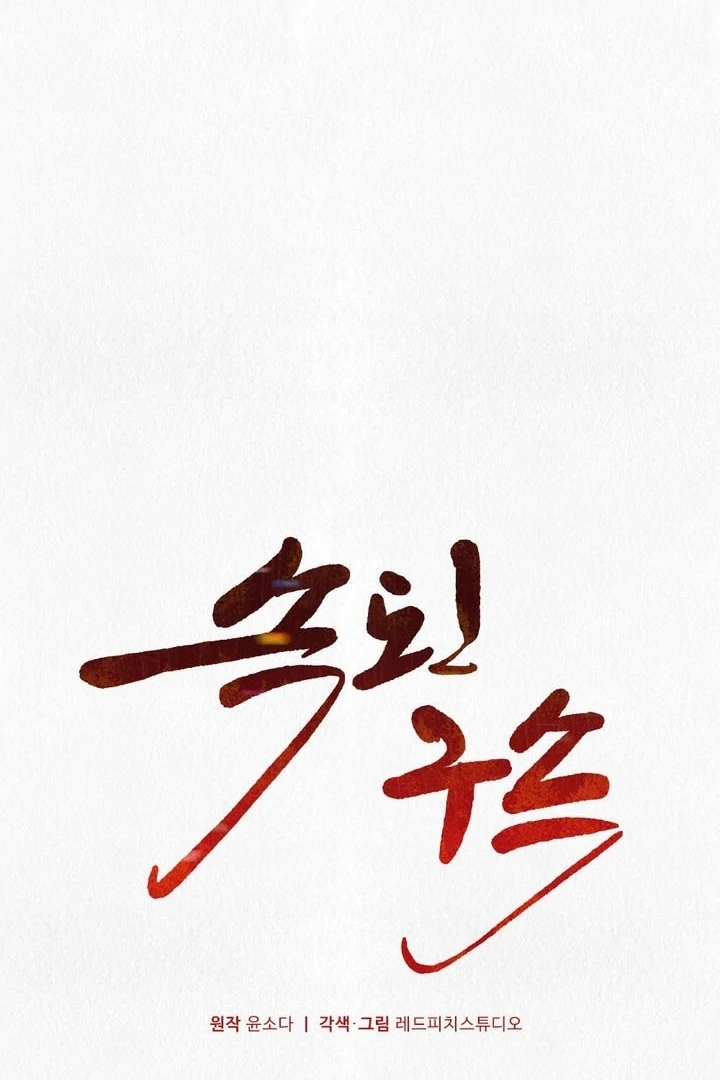 속된
구속
원작 윤소다 | 각색·그림 레드피치스튜디오